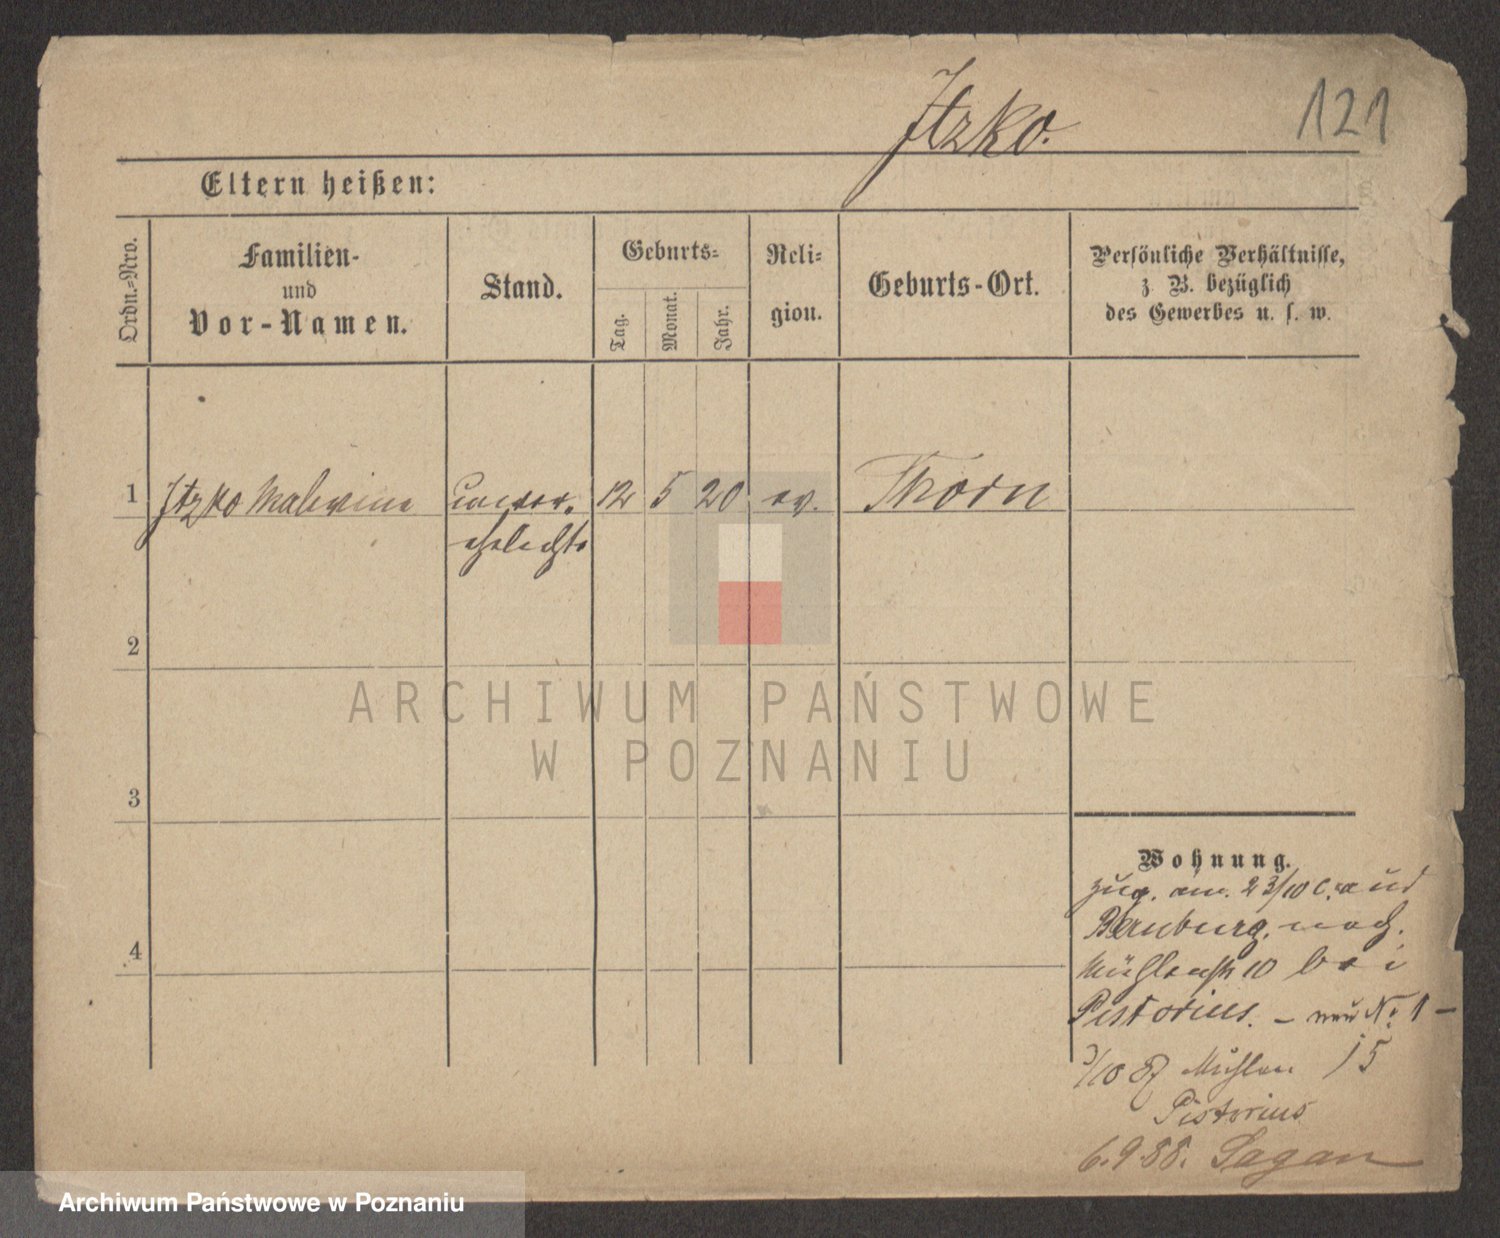 Itzko.
121
Eltern heißen:
Ordn.-Nro.
Familien-
und
Vor-Namen.
Stand.
Geburts-
Tag.
Monat.
Jahr.
Reli-
gion.
Geburts-Ort.
Persönliche Verhältnisse,
z. B. bezüglich
des Gewerbes u. s. w.
1 Itzko Malwine unver- 12 5 20 ev. Thorn
ehelichte
2
3
4
Wohnung.
zug. am 23/10 c. aus
Bernburg. nach.
Mühlenstr 10 bei
Pistorius. – neu No. 1 –
3/10 87 Mühlen 15
Pistorius
6.9.88. Sagan
ARCHIWUM PAŃSTWOWE
W POZNANIU
Archiwum Państwowe w Poznaniu